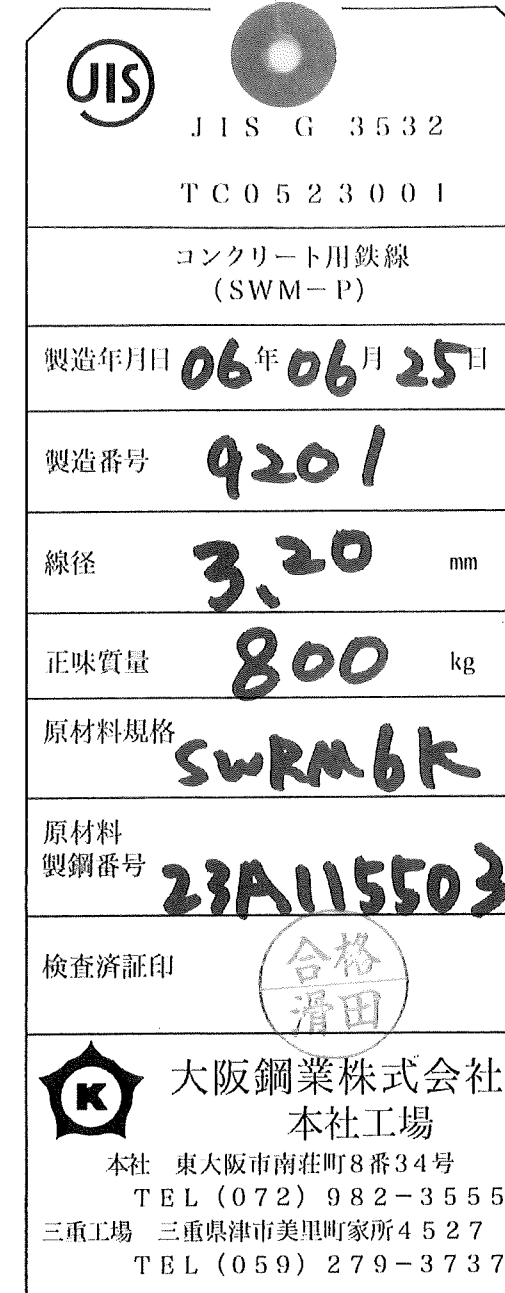 JIS
JIS G 3532
TC0523001
コンクリート用鉄線
(SWM-P)
製造年月日 06年06月25日
製造番号 9201
線径 3.20 mm
正味質量 800 kg
原材料規格 SWRM6K
原材料
製鋼番号 23A115503
検査済証印 合格
滑田
K
大阪鋼業株式会社
本社工場
本社 東大阪市南荘町8番34号
TEL (072) 982-3555
三重工場 三重県津市美里町家所4527
TEL (059) 279-3737